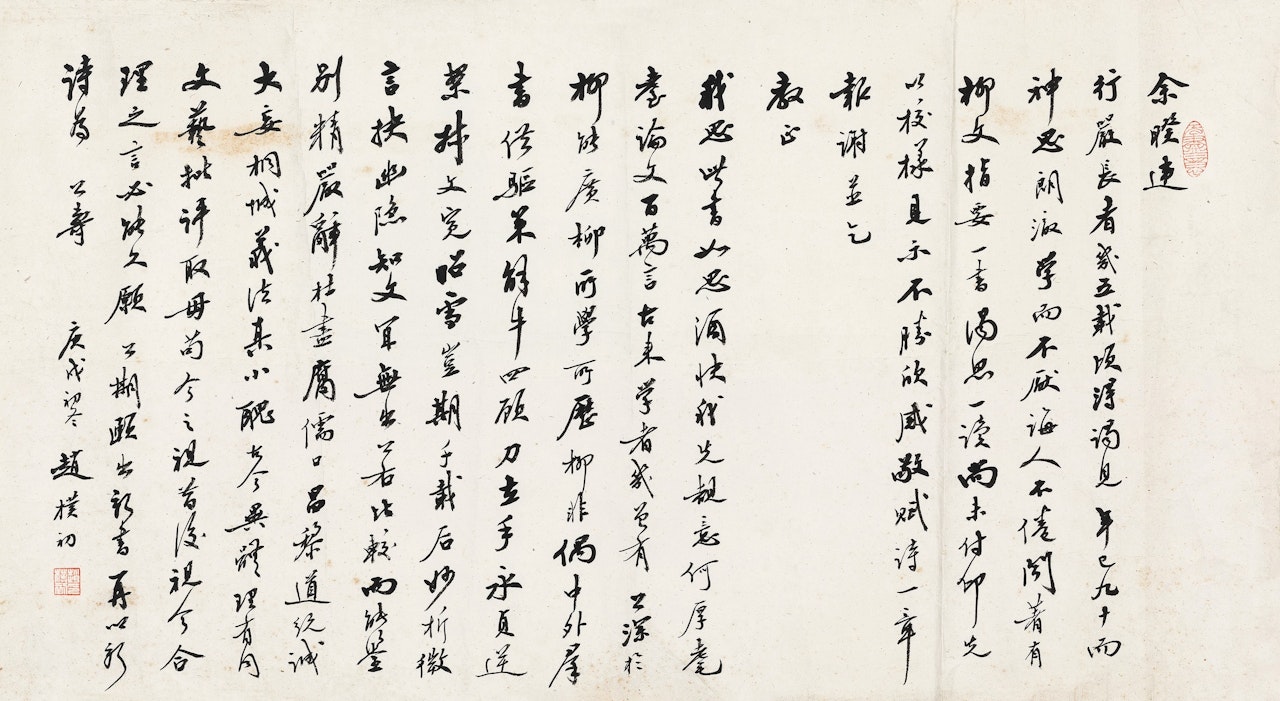 余暌違
行嚴長者幾五載頃得謁見年已九十而
神思朗澈学而不厭誨人不倦聞著有
柳文指要一書渴思一讀尚未付印先
以校樣見示不勝欣感敬賦詩一章
報謝並乞
教正
我思此書如思酒快我先覩意何厚耄
耋論文百萬言古来学者幾曾有公深於
柳能廣柳所學所歷柳非偶中外群
書供驅策解牛四顧刀在手永貞逆
案叔文冤昭雪豈期千載后妙析微
言抉幽隐知文宜無出公右比較而能鑒
别精嚴辭杜盡腐儒口昌黎道統誠
大妄桐城義法真小醜古今異體理有同
文藝批評取毋苟今之視昔後視今合
理之言必能久願公期頤出新書再以新
詩為公壽 庚戌初冬 趙樸初